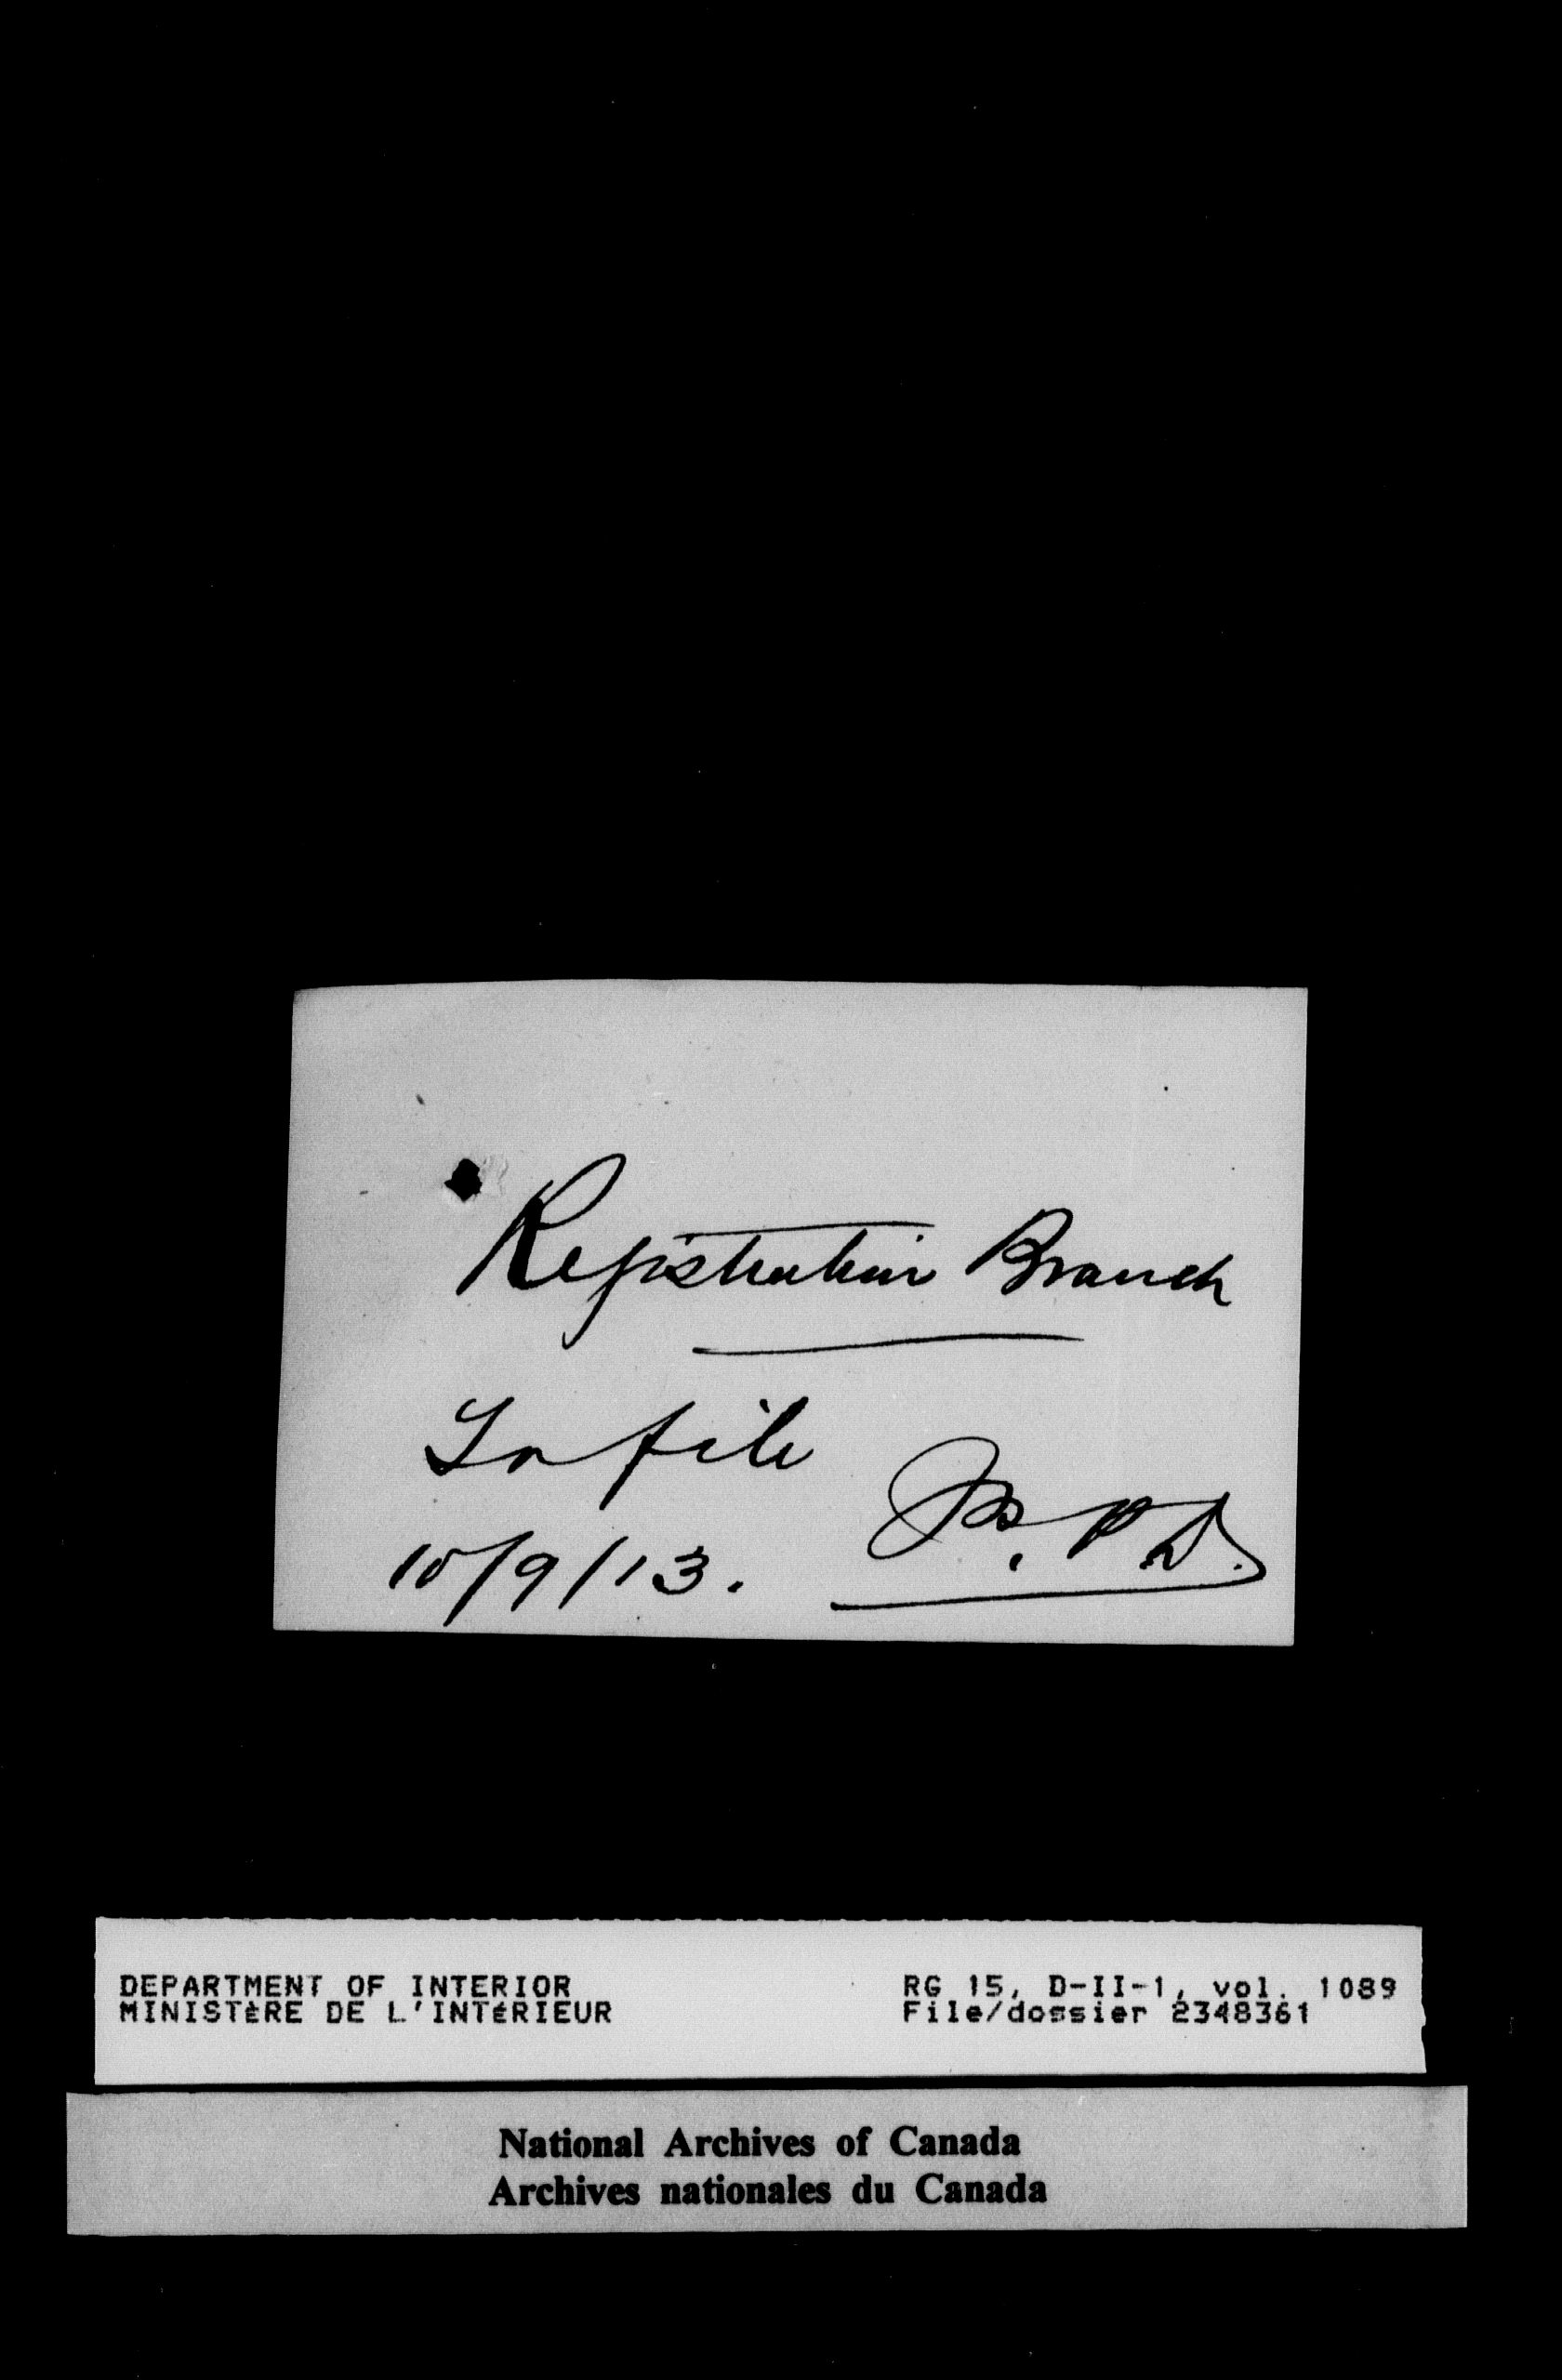 Registration Branch
To file
10/9/13.
DEPARTMENT OF INTERIOR
MINISTÈRE DE L'INTÉRIEUR
RG 15, D-II-1, vol. 1089
File/dossier 2348361
National Archives of Canada
Archives nationales du Canada